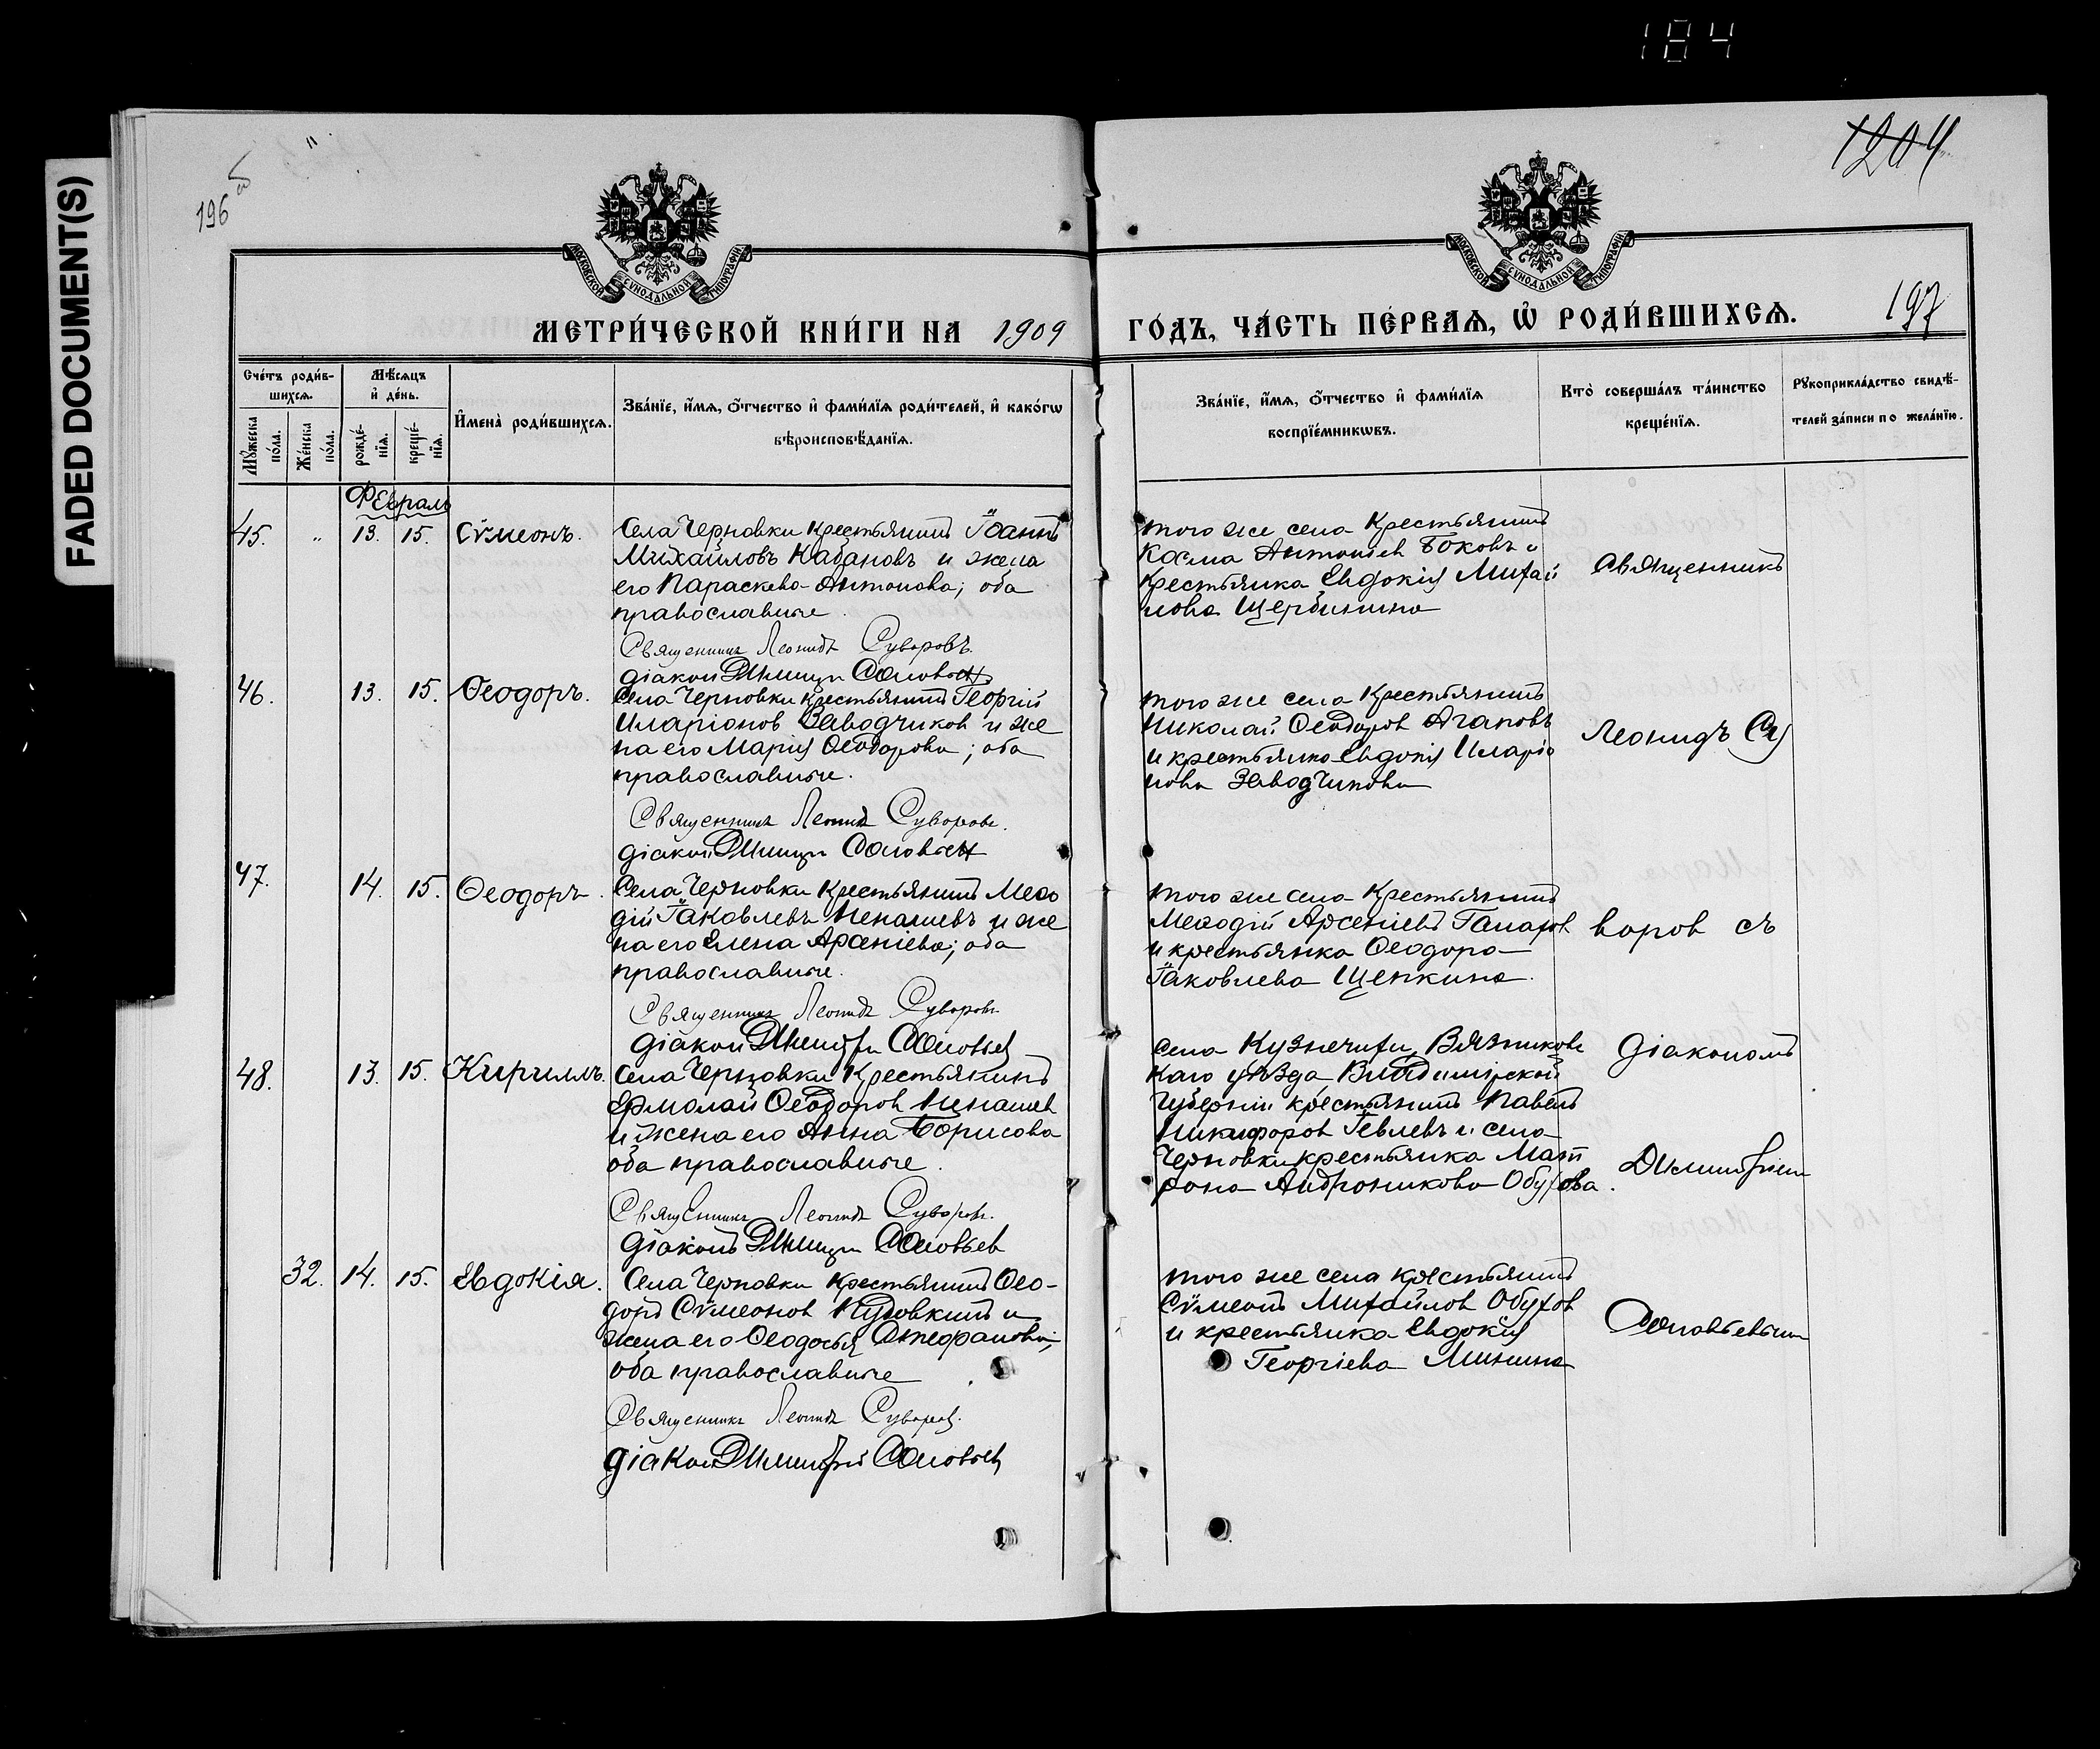 184
FADED DOCUMENT(S)
196 об
1204
197
МОСКОВСКОЙ СѴНОДАЛЬНОЙ ТИПОГРАФІИ
МОСКОВСКОЙ СѴНОДАЛЬНОЙ ТИПОГРАФІИ
МЕТРИ́ЧЕСКОЙ КНИ́ГИ НА 1909 ГО́ДЪ, ЧА́СТЬ ПЕ́РВАѦ, Ѡ҆ РОДИ́ВШИХСѦ.
Сче́тъ роди́в-
шихсѧ.
Мꙋ́жеска по́ла.
Же́нска по́ла.
Мѣ́сѧцъ
и҆ де́нь.
рожде́-
нїѧ.
креще́-
нїѧ.
И҆мена̀ роди́вшихсѧ.
Зва́нїе, и҆́мѧ, ѻ҆́тчество и҆ фами́лїѧ роди́телей, и҆ како́гѡ
вѣроисповѣ́данїѧ.
Зва́нїе, и҆́мѧ, ѻ҆́тчество и҆ фами́лїѧ
воспрїе́мникѡвъ.
Кто̀ соверша́лъ та́инство
креще́нїѧ.
Рꙋкоприкла́дство свидѣ́-
телей за́писи по жела́нїю.
Февраль
45. „ 13. 15. Сѵмеонъ.
Села Черновки крестьянинъ Іоаннъ
Михайловъ Кабановъ и жена
его Параскева Антонова; оба
православные
Священникъ Леонидъ Суворовъ.
діаконъ Димитрій Соловьевъ
того же села крестьянинъ
Косма Антоніев Боковъ и
крестьянка Евдокія Михай
лова Щербинина
Священникъ
46. 13. 15. Ѳеодоръ.
Села Черновки крестьянинъ Георгій
Иларіонов Заводчиков и же
на его Марія Ѳеодорова; оба
православные.
Священникъ Леонидъ Суворовъ.
діаконъ Димитрій Соловьевъ
того же села крестьянинъ
Николай Ѳеодоров Агаповъ
и крестьянка Евдокія Иларіо
нова Заводчикова
Леонидъ Су
47. 14. 15. Ѳеодоръ.
Села Черновки крестьянинъ Меѳо
дій Іаковлевъ Ненашевъ и же
на его Елена Арсеніева; оба
православные.
Священникъ Леонидъ Суворовъ.
діаконъ Димитрій Соловьев
того же села крестьянинъ
Меѳодій Арсеніевъ
и крестьянка Ѳеодора
Іаковлева Щепкина.
воров съ
48. 13. 15. Кириллъ.
Села Черновки крестьянинъ
Ермолай Ѳеодоров Ненашев
и жена его Анна Борисова
оба православные.
Священникъ Леонидъ Суворовъ.
діаконъ Димитрій Соловьев
села Кузнечихи, Вязников
каго уѣзда Владимірской
Губерніи крестьянинъ Павелъ
Никифоров и села
Черновки крестьянка Мат
рона Андроникова Обухова.
діакономъ
Димитріем
32. 14. 15. Евдокія.
Села Черновки крестьянинъ Ѳео-
доръ Сѵмеонов и
жена его Ѳеодосья
оба православные
Священникъ Леонидъ Суворов.
діаконъ Димитрій Соловьев
того же села крестьянинъ
Сѵмеонъ Михайлов Обухов
и крестьянка Евдокія
Георгіева Минина
Соловьевым